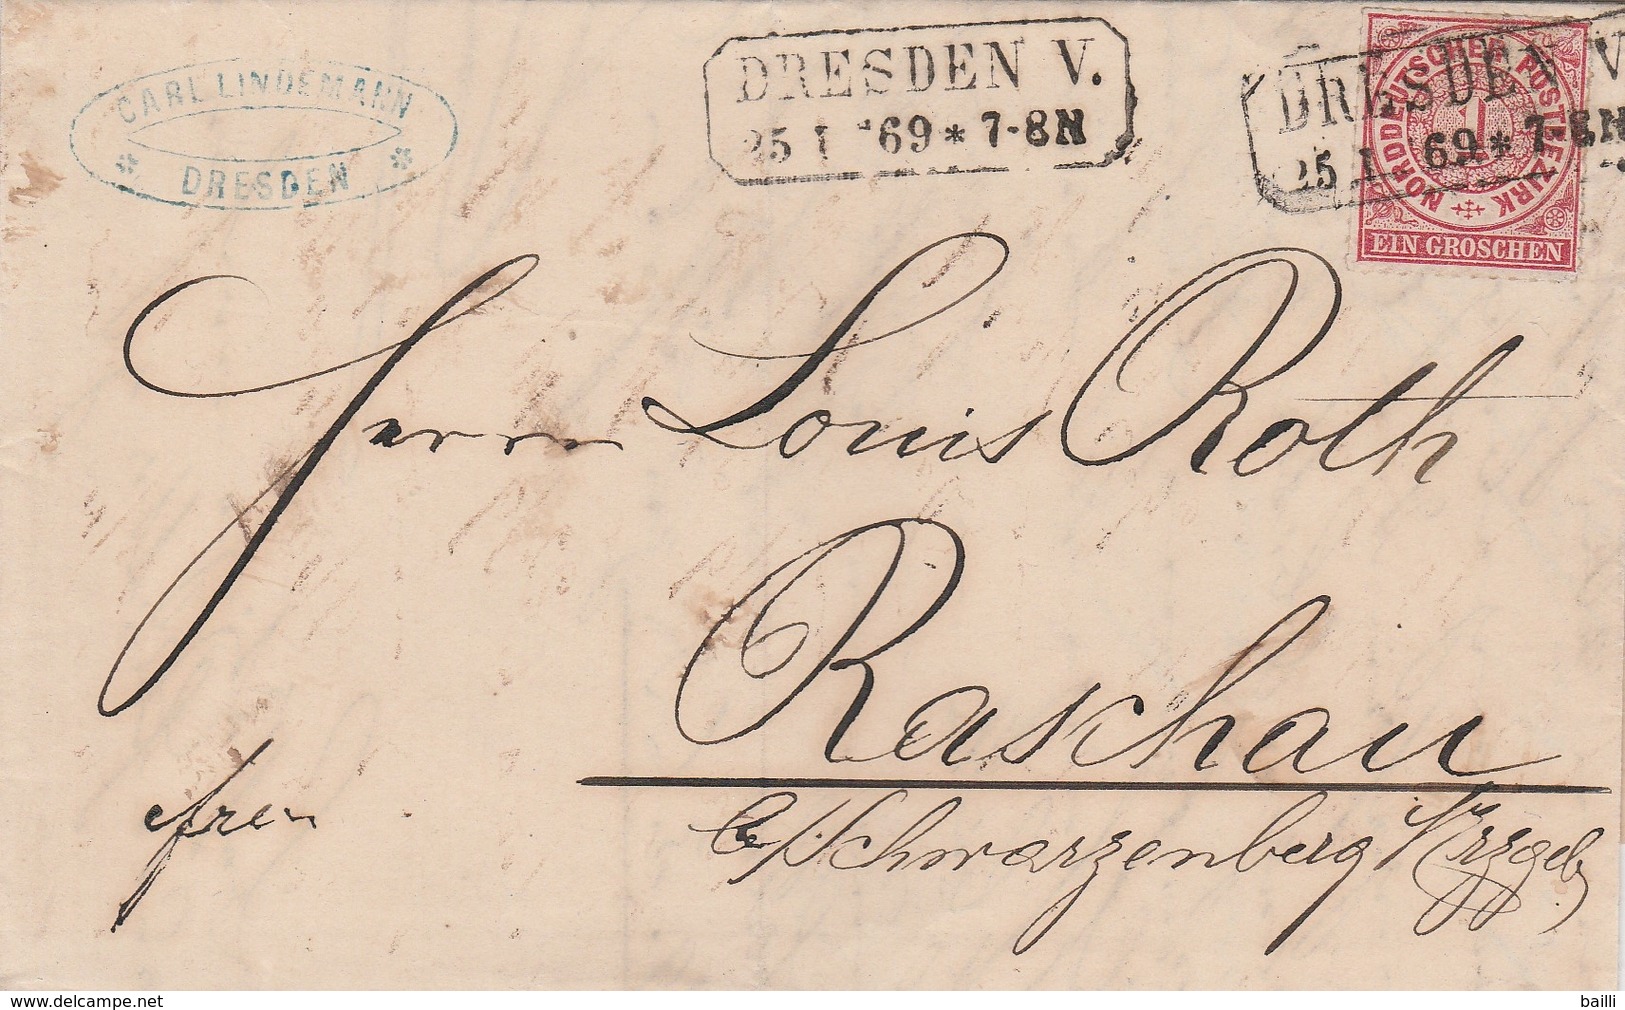 CARL LINDEMANN
* DRESDEN *
DRESDEN V.
25 I 69 * 7-8 N
DRESDEN V
25 I 69 * 7-8 N
NORDDEUTSCHER POSTBEZIRK
1
EIN GROSCHEN
Herrn Louis Roth
Raschau
b/Schwarzenberg i/Erzgeb.
www.delcampe.net
bailli